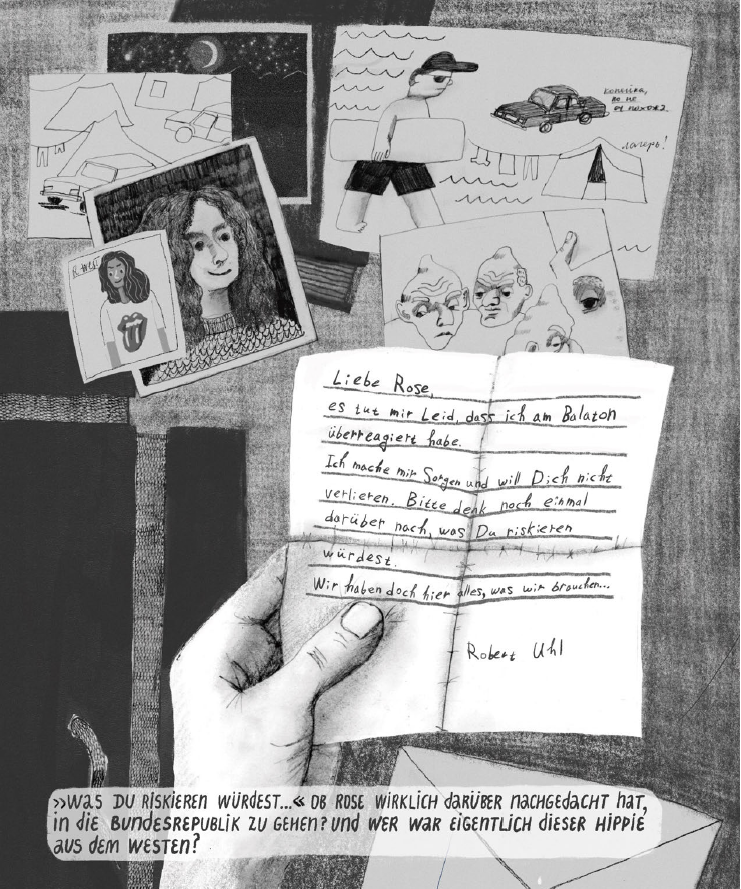 копейка,
но не
лагерь!
Liebe Rose,
es tut mir Leid, dass ich am Balaton
überreagiert habe.
Ich mache mir Sorgen und will Dich nicht
verlieren. Bitte denk noch einmal
darüber nach, was Du riskieren
würdest.
Wir haben doch hier alles, was wir brauchen...
Robert Uhl
»WAS DU RISKIEREN WÜRDEST...« OB ROSE WIRKLICH DARÜBER NACHGEDACHT HAT,
IN DIE BUNDESREPUBLIK ZU GEHEN? UND WER WAR EIGENTLICH DIESER HIPPIE
AUS DEM WESTEN?